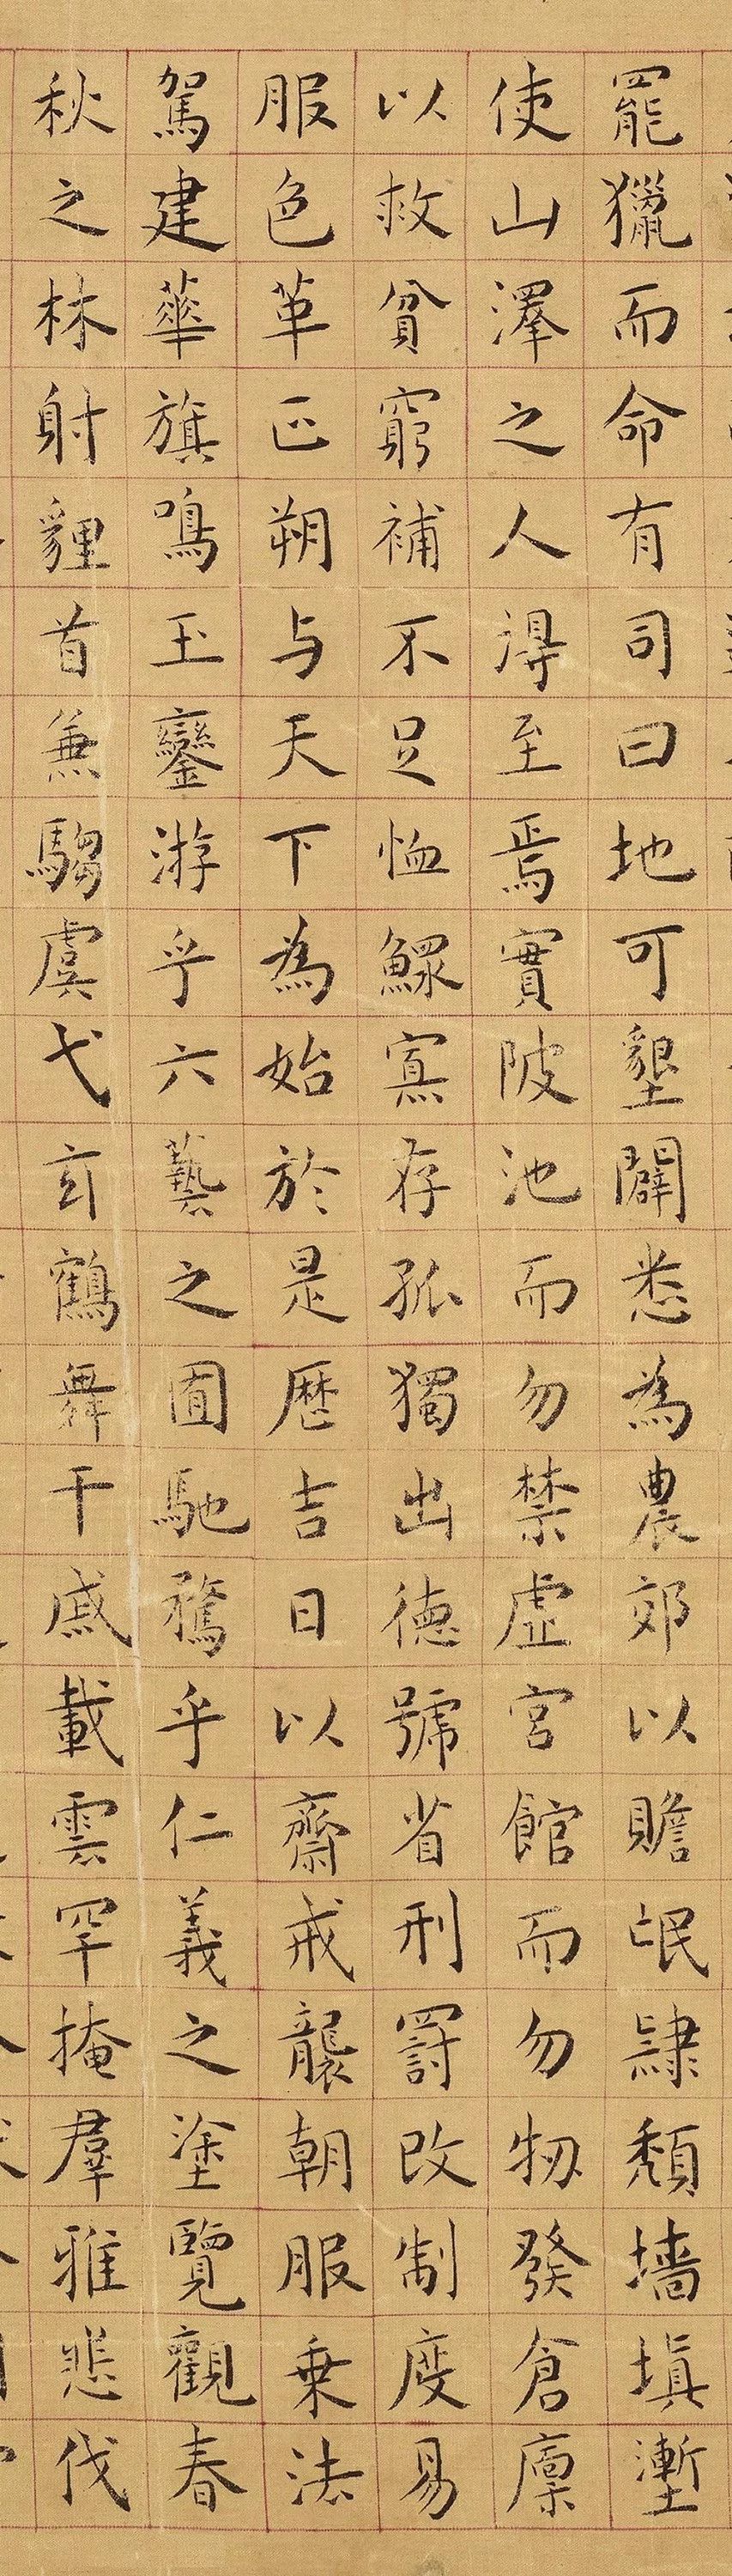 罷獵而命有司曰地可墾闢悉為農郊以贍氓隸頹墻填塹
使山澤之人得至焉實陂池而勿禁虛宮館而勿牣發倉廩
以救貧窮補不足恤鰥寡存孤獨出德號省刑罰改制度易
服色革正朔与天下為始於是歷吉日以齋戒襲朝服乗法
駕建華旗鳴玉鑾游乎六藝之囿馳騖乎仁義之塗覽觀春
秋之林射貍首兼騶虞弋玄鶴舞干戚載雲罕掩羣雅悲伐